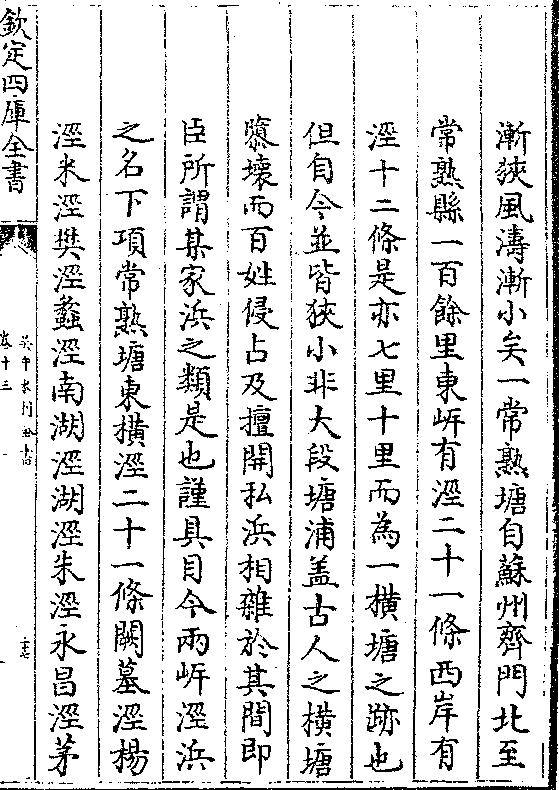 漸狹風濤漸小矣一常熟塘自蘇州齊門北至
常熟縣一百餘里東㟁有涇二十一條西岸有
涇十二條是亦七里十里而為一橫塘之跡也
但自今並皆狹小非大段塘浦盖古人之橫塘
隳壞而百姓侵占及擅開私浜相雜於其間即
臣所謂某家浜之類是也謹具目今兩㟁涇浜
之名下項常熟塘東橫涇二十一條闕墓涇楊
涇米涇樊涇蠡涇南湖涇湖涇朱涇永昌涇茅
欽定四庫全書
吳中水利全書
卷十三